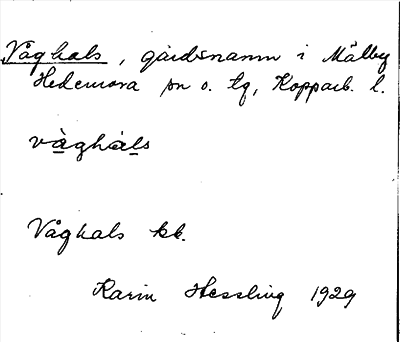 Våghals, gårdsnamn i Mälby
Hedemora sn o. tg, Kopparb. l.
vàghàls
Våghals kk.
Karin Hessling 1929